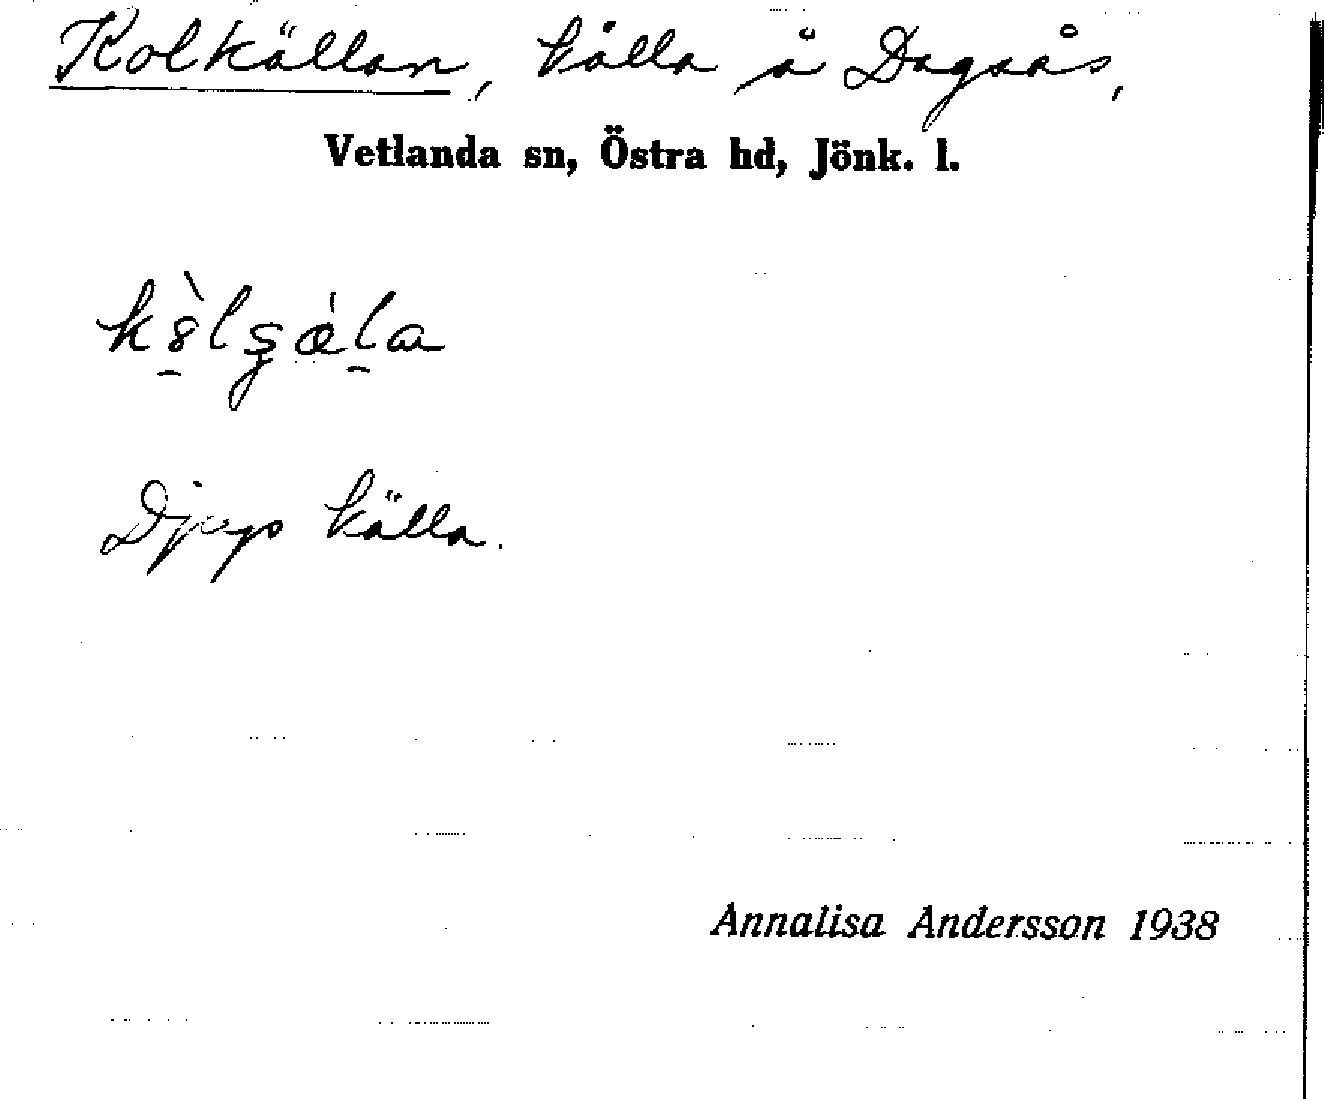 Kolkällan, källa å Dagsås,
Vetlanda sn, Östra hd, Jönk. l.
Djup källa.
Annalisa Andersson 1938